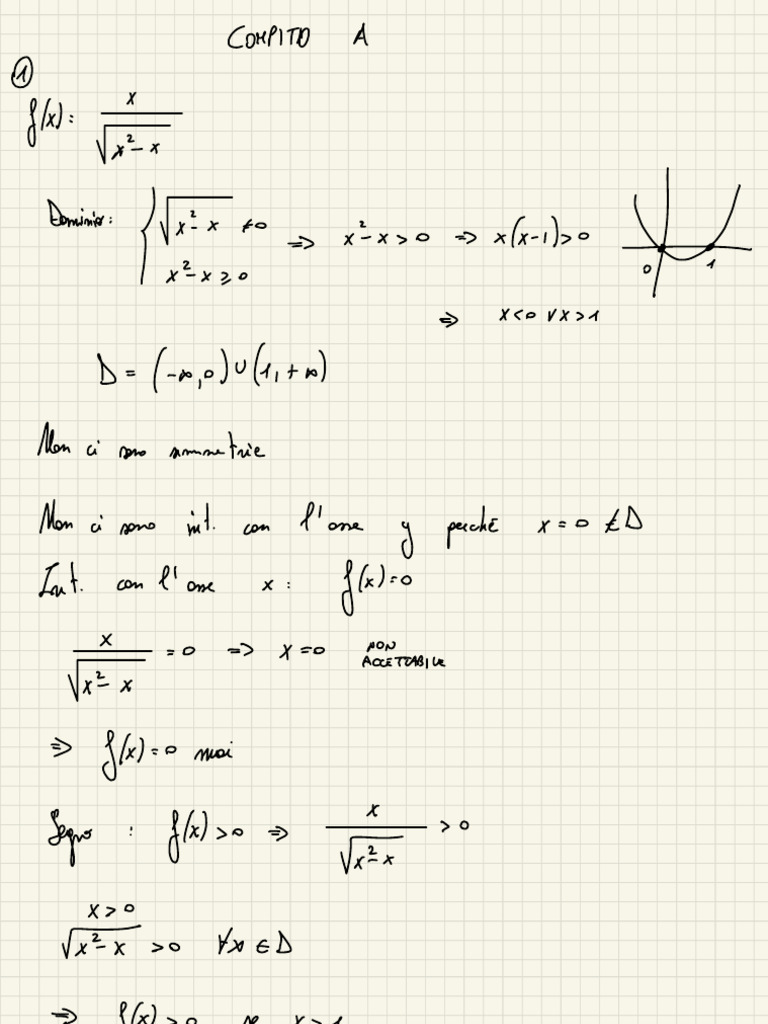 COMPITO A
①
f(x): x / √(x² - x)
Dominio: { √(x² - x) ≠ 0 ⇒ x² - x > 0 ⇒ x(x-1) > 0
x² - x ≥ 0
0 1
⇒ x < 0 ∨ x > 1
D = (-∞, 0) ∪ (1, +∞)
Non ci sono simmetrie
Non ci sono int. con l'asse y perché x = 0 ∉ D
Int. con l'asse x: f(x) = 0
x / √(x² - x) = 0 ⇒ x = 0 NON ACCETTABILE
⇒ f(x) = 0 mai
Segno : f(x) > 0 ⇒ x / √(x² - x) > 0
x > 0
√(x² - x) > 0 ∀x ∈ D
⇒ f(x) > 0 se x > 1